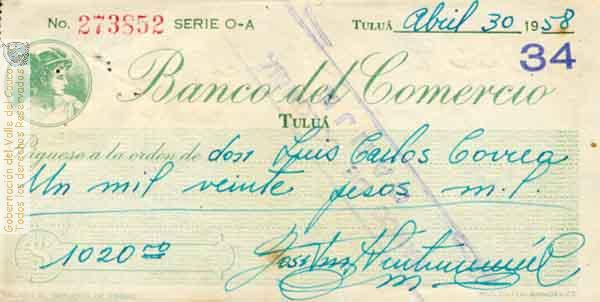 No. 273852 SERIE O-A TULUÁ Abril 30 1958
34
Banco del Comercio
TULUÁ
Páguese a la orden de don Luis Carlos Correa
Un mil veinte pesos m.l.
1020 00
Gobernación del Valle del Cauca
Todos los derechos Reservados